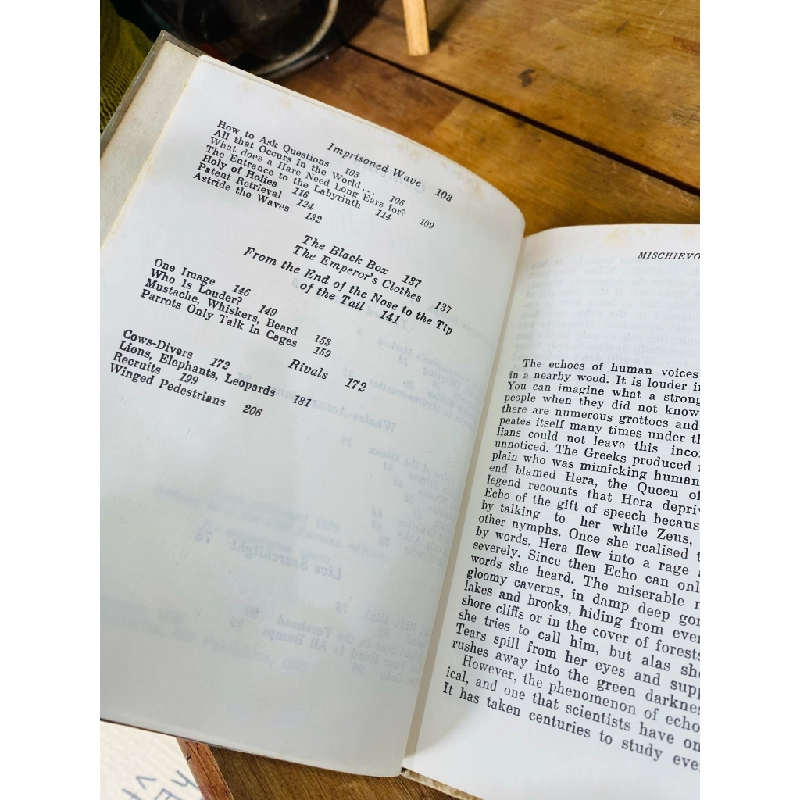 Imprisoned Wave 103
How to Ask Questions 103
All that Occurs in the World... 106
What does a Hare Need Long Ears for? 109
The Entrance to the Labyrinth 114
Holy of Holies 116
Patent Retrieval 124
Astride the Waves 132
The Black Box 137
The Emperor's Clothes 137
From the End of the Nose to the Tip
of the Tail 141
One Image 146
Who Is Louder? 149
Mustache, Whiskers, Beard
Parrots Only Talk in Cages 159
Rivals 172
Cows-Divers 172
Lions, Elephants, Leopards 181
Recruits 199
Winged Pedestrians 206
MISCHIEVO
The echoes of human voices
in a nearby wood. It is louder in
You can imagine what a strong
people when they did not know
there are numerous grottoes and
peates itself many times under th
lians could not leave this incom
unnoticed. The Greeks produced
plain who was mimicking human
end blamed Hera, the Queen of
legend recounts that Hera depriv
Echo of the gift of speech becaus
by talking to her while Zeus,
other nymphs. Once she realised t
by words, Hera flew into a rage a
severely. Since then Echo can onl
words she heard. The miserable n
gloomy caverns, in damp deep gor
lakes and brooks, hiding from ever
shore cliffs or in the cover of forests
she tries to call him, but alas she
Tears spill from her eyes and supp
rushes away into the green darkness
However, the phenomenon of echo
ical, and one that scientists have on
It has taken centuries to study eve